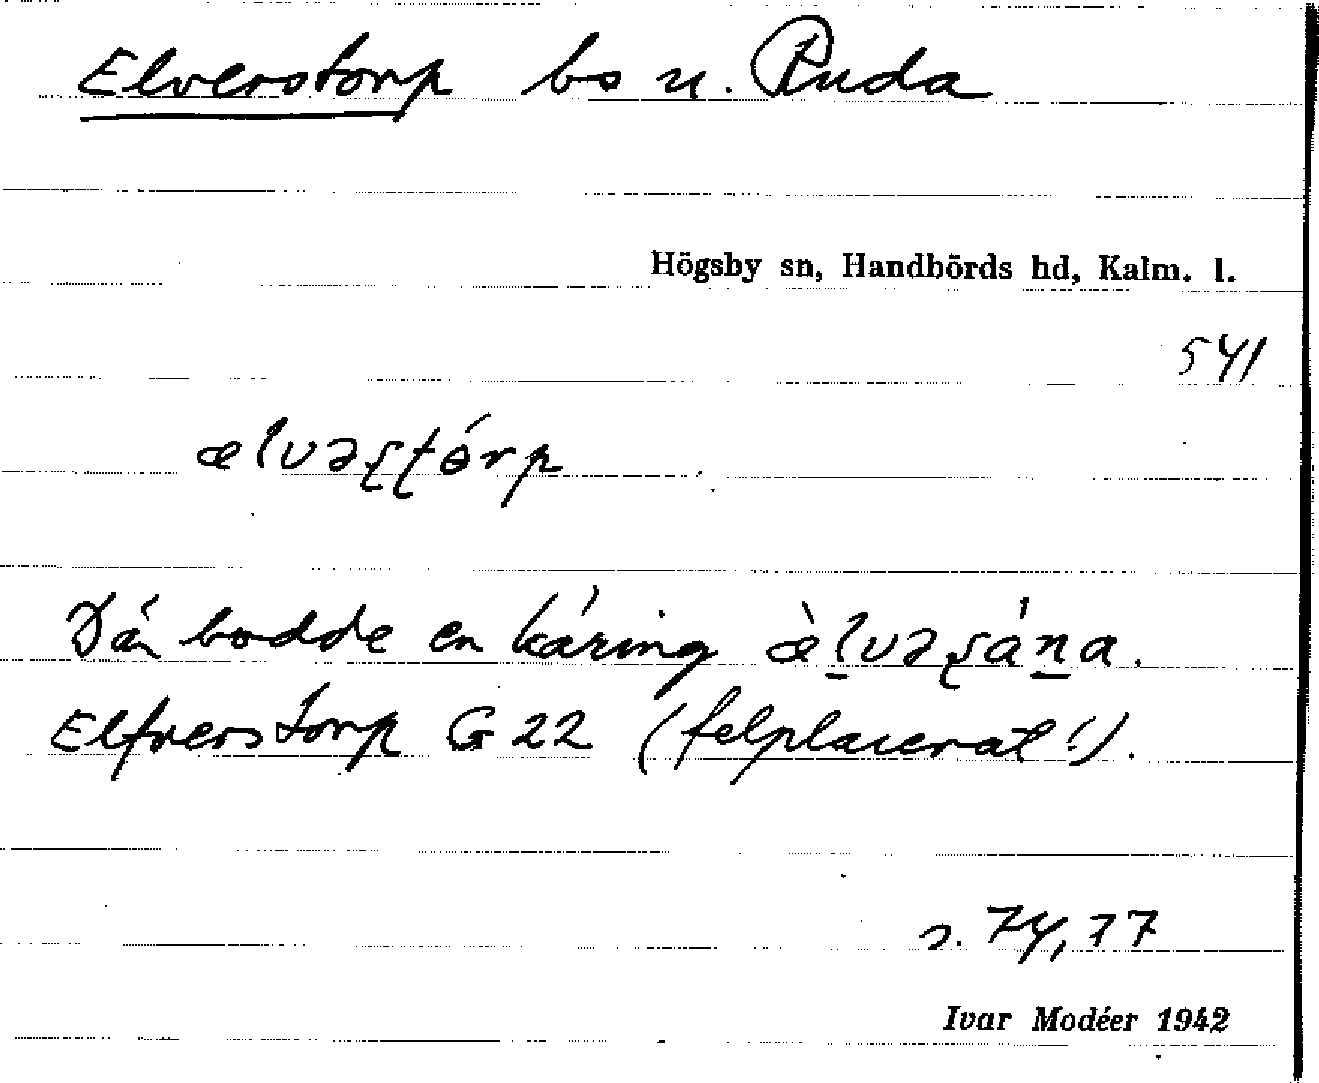 Elverstorp bs u. Ruda
Högsby sn, Handbörds hd, Kalm. l.
541
ælvəʂʈórp
Där bodde en käring æ̀l̠vəʂán̠a.
Elfverstorp G 22 (felplacerat!).
s. 74, 77
Ivar Modéer 1942